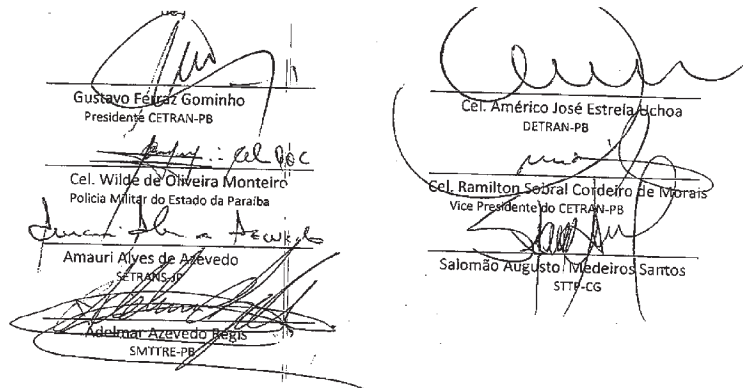 Gustavo Ferraz Gominho
Presidente CETRAN-PB
Cel. Wilde de Oliveira Monteiro
Policia Militar do Estado da Paraíba
Amauri Alves de Azevedo
SETRANS-JP
Adelmar Azevedo Regis
SMTTRE-PB
Cel. Américo José Estrela Uchoa
DETRAN-PB
Cel. Ramilton Sobral Cordeiro de Morais
Vice Presidente do CETRAN-PB
Salomão Augusto Medeiros Santos
STTP-CG